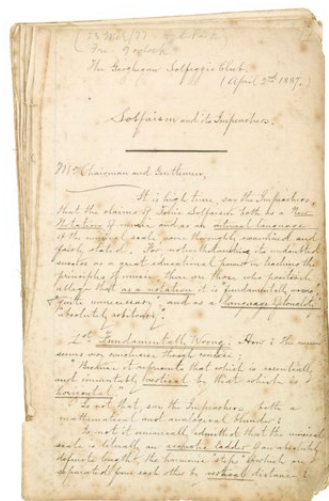 The Gorgheian Solfeggio Club.
(April 2nd 1887.)
Solfaism and its Impeachers.
Mr Chairman and Gentlemen,
It is high time, say the Impeachers,
that the claims of Tonic Solfaism both as a New
Notation of music and as an interval language
of the musical scale were thoroughly examined and
fairly stated. For notwithstanding its undoubted
success as a great educational power in teaching the
principles of music, there are those who positively
allege that as a notation it is fundamentally wrong,
"quite unnecessary", and as a language of tonality
"absolutely arbitrary".
1st Fundamentally Wrong: How? The answer
seems very conclusive though concise:
"Because it represents that which is essentially
and inevitably vertical by that which is
horizontal."
Is not that, say the Impeachers, both a
mathematical and analogical blunder?
Is not it universally admitted that the musical
scale is literally an ladder of an absolutely
definite length, the harmonic steps of which are
separated from each other by vertical distance?